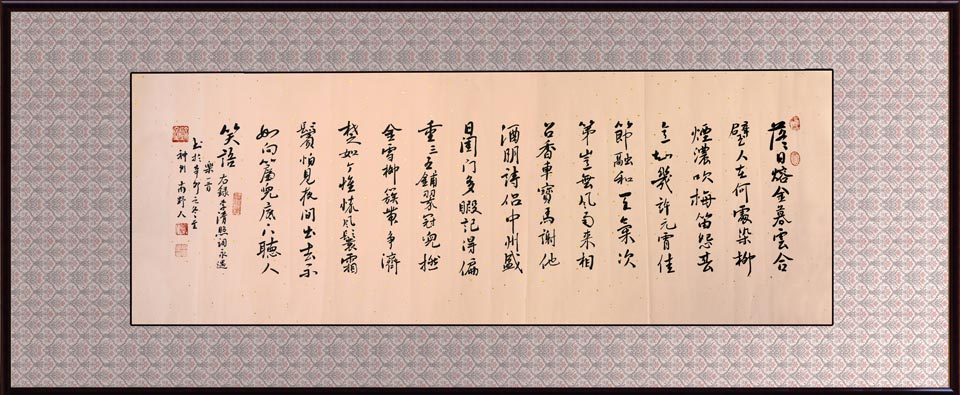 落日熔金暮雲合
璧人在何處染柳
煙濃吹梅笛怨春
意知幾許元宵佳
節融和天氣次
第豈無風雨来相
召香車寶馬謝他
酒朋詩侶中州盛
日閨門多暇記得偏
重三五鋪翠冠兒撚
金雪柳簇帶争濟
楚如今憔悴風鬟霜
鬢怕見夜間出去不
如向簾兒底下聽人
笑語 右錄李清照詞永遇
樂
書於辛卯
南野人